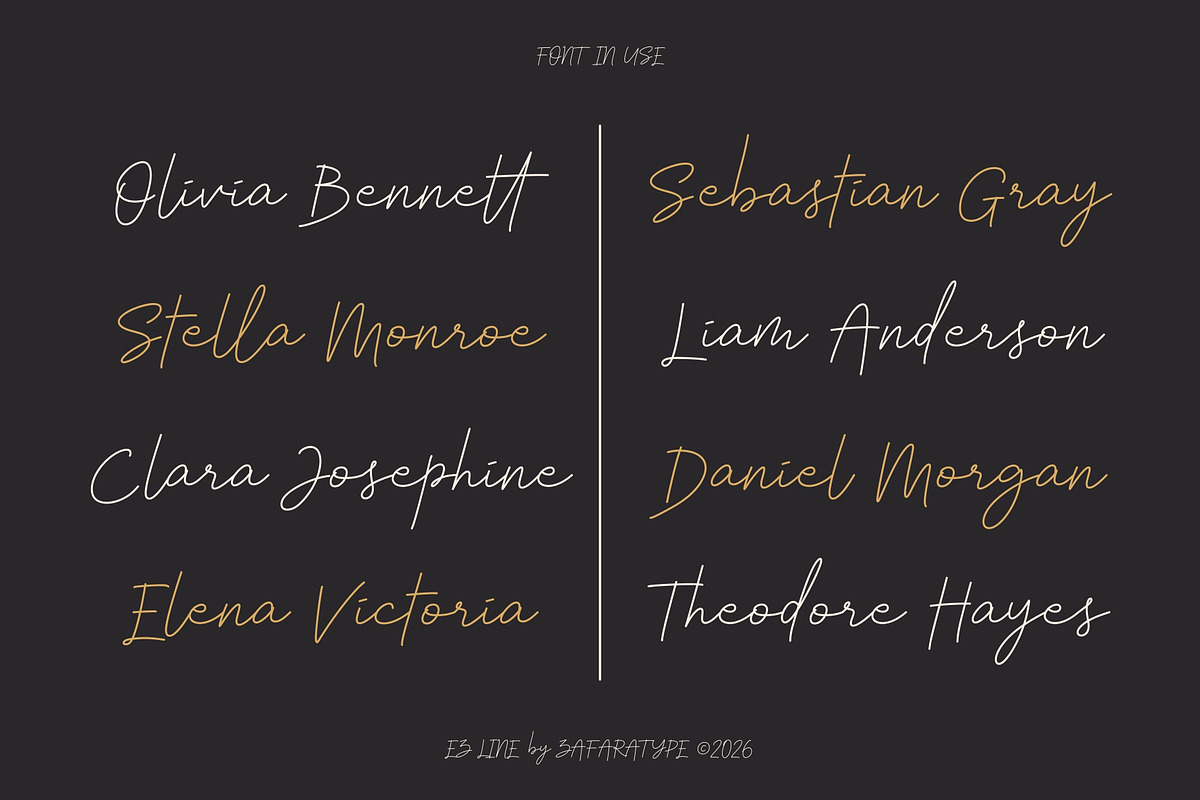 FONT IN USE
Olivia Bennett
Stella Monroe
Clara Josephine
Elena Victoria
Sebastian Gray
Liam Anderson
Daniel Morgan
Theodore Hayes
EZ LINE by ZAFARATYPE ©2026